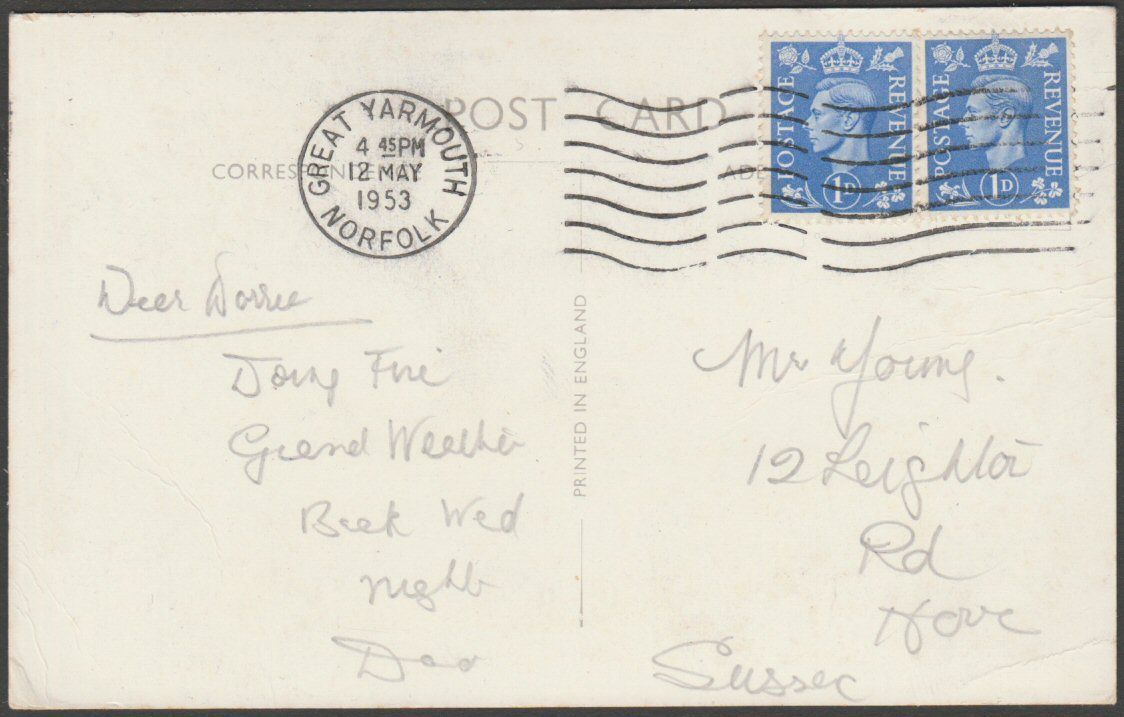 POST CARD
CORRESPONDENCE
GREAT YARMOUTH
4 45 PM
12 MAY
1953
NORFOLK
POSTAGE REVENUE
1D
POSTAGE REVENUE
1D
Dear Dorree
Doing Fine
Grand Weather
Back Wed
night
Dad
PRINTED IN ENGLAND
Mr Young.
12 Leighton
Rd
Hove
Sussex